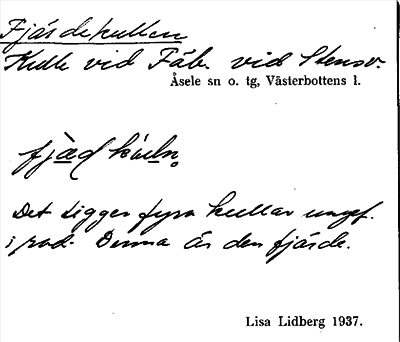 Fjärdekullen
Kulle vid Fäb. vid Stensv.
Åsele sn o. tg, Västerbottens l.
fjæḍ
Det ligger fyra kullar ungef.
i rad. Denna är den fjärde.
Lisa Lidberg 1937.